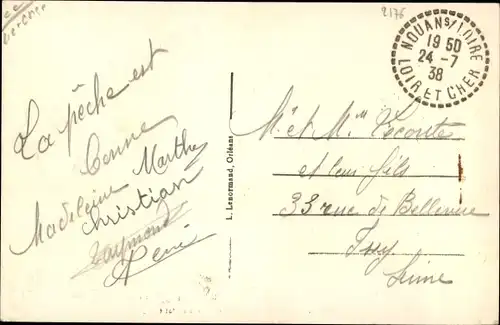 2176
NOUANS/LOIRE
19 50
24 - 7
38
LOIR ET CHER
La pêche est
bonne
Marthe
Madeleine
Christian
Raymond
L. Lenormand, Orléans
Mr et Mme Lecomte
et leur fils
33 rue de Bellevue
Issy
Seine